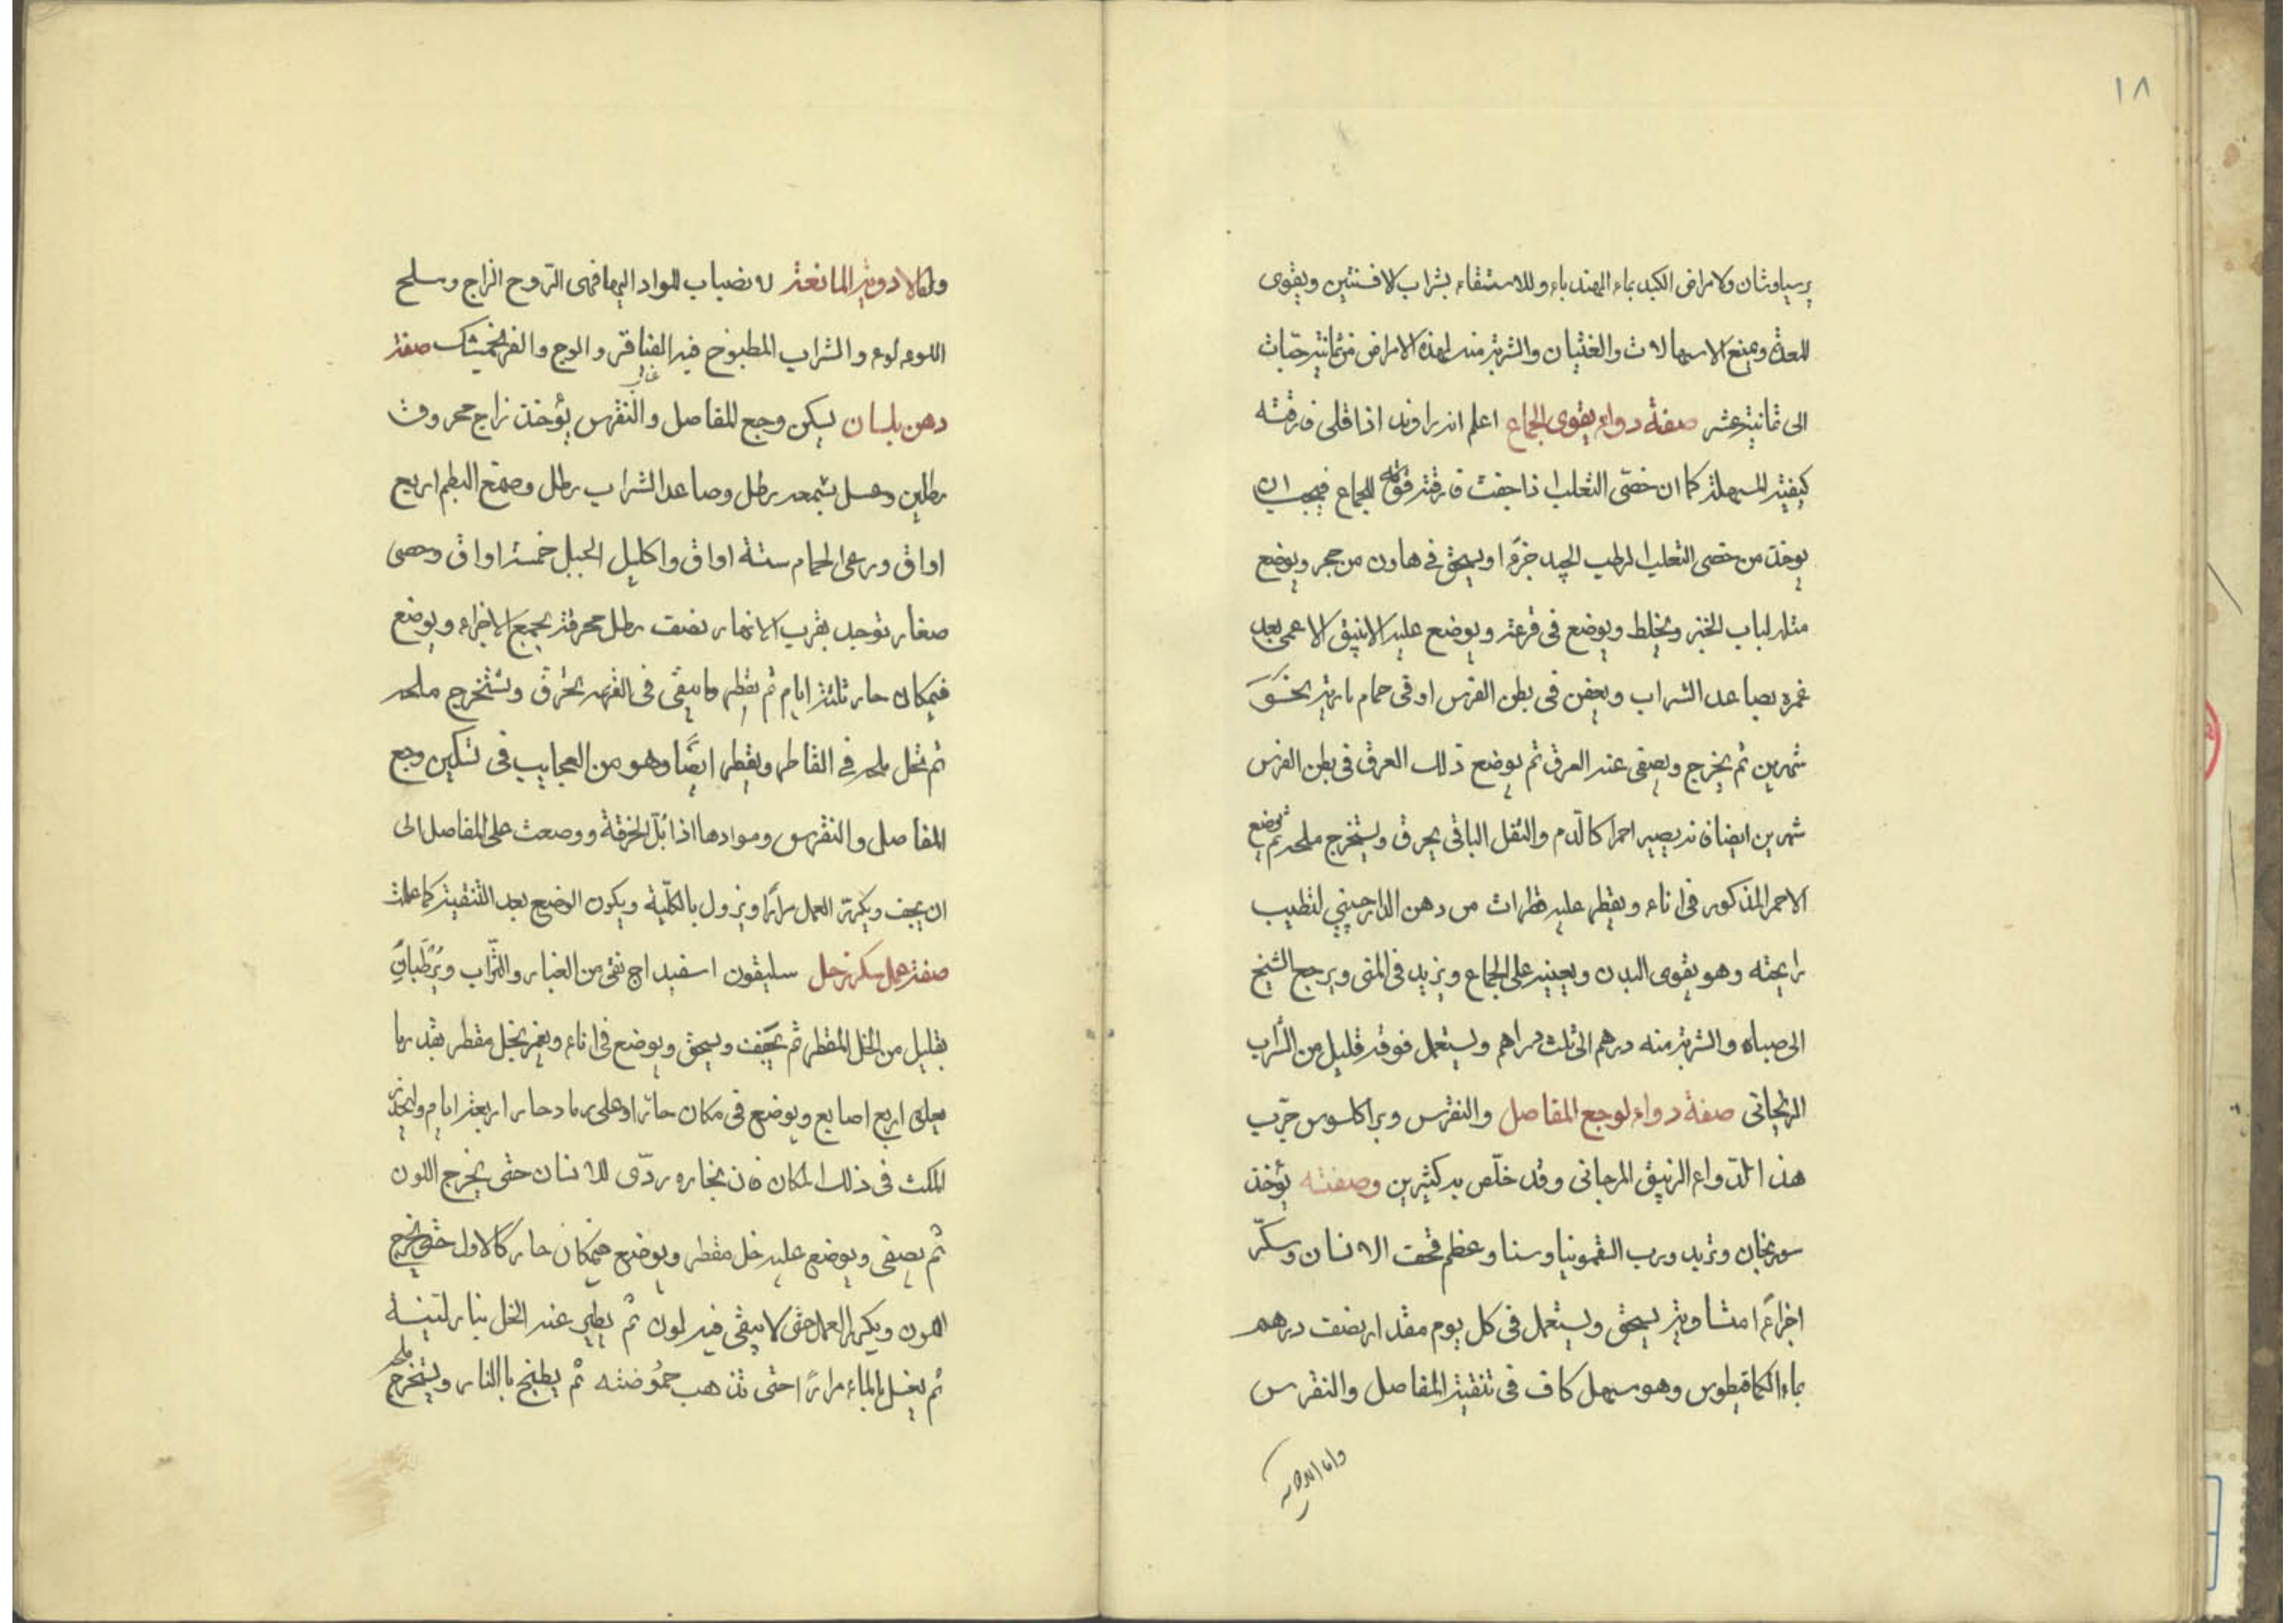 ١٨
برسياوشان ولامراض الكبد بماء الهندباء وللاستسقاء بشراب الافسنتين ويقوى
المعدة ويمنع الاسهالات والغثيان والشربة منه لهذه الامراض من ثمانية حبات
الى ثمانية عشر صفة دواء يقوى الجماع اعلم ان الراوند اذا قلى فارقته
كيفيته المسهلة كما ان خصى الثعلب اذا جفت فارقته قوته للجماع فيجب ان
يوخذ من خصى الثعلب الرطب الجيد جزءا ويسحق في هاون من حجر ويوضع
مثله لباب الخبز ويخلط ويوضع في قرعة ويوضع عليه الانبيق الاعمى بعد
غمره بصاعد الشراب ويعفن في بطن الفرس او في حمام مارية نحو
شهرين ثم يخرج ويصفى عنه العرق ثم يوضع ذلك العرق في بطن الفرس
شهرين ايضا فانه يصير احمرا كالدم والثفل الباقى يحرق ويستخرج ملحه ثم يوضع
الاحمر المذكور في اناء ويقطر عليه قطرات من دهن الدارچيني لتطيب
رايحته وهو يقوى البدن ويعينه على الجماع ويزيد في المنى ويرجع الشيخ
الى صباه والشربة منه درهم الى ثلث دراهم ويستعمل فوقه قليل من الشراب
الريحانى صفة دواء لوجع المفاصل والنقرس وبراكلسوس جرب
هذا الدواء الزيبق المرجانى وقد خلص به كثيرين وصفته يؤخذ
سورنجان وتربد ورب السقمونيا وسنا وعظم قحف الانسان وسكر
اجزاءً امتساوية يسحق ويستعمل في كل يوم مقدار نصف درهم
بماء الكمافيطوس وهو سهل كاف في تنقية المفاصل والنقرس
واما الادوية
واما الادوية المانعة لانصباب المواد اليها فهى التروح الزاج وسلح
اللوءلوء والشراب المطبوخ فيه القناقر والوج والفرنجمشك صفة
دهن بلسان يسكن وجع المفاصل والنقرس يؤخذ زاج محروق
رطلين وعسل بشمعه رطل وصاعد الشراب رطل وصمغ البطم اربع
اواق ورعى الحمام ستة اواق واكليل الجبل خمسة اواق وحصى
صغار توجد بقرب الانهار نصف رطل محرقة يجمع الاجزاء ويوضع
في مكان حار ثلثة ايام ثم يقطر وما يبقى في القرعة يحرق ويستخرج ملحه
ثم تحل ملحه في القاطر ويقطر ايضًا وهو من العجايب في تسكين وجع
المفاصل والنقرس وموادها اذا بُلّ الخرقة ووضعت على المفاصل الى
ان يجف ويكرر العمل مرارًا ويزول بالكلّية ويكون الوضع بعد التنقية كما علمت
صفة عمل سكر زحل سليقون اسفيداج نقى من الغبار والتّراب ويُرَطّبانِ
بقليل من الخل المقطر ثم يجفف ويسحق ويوضع في اناء ويغمر بخل مقطر بقدر ما
يعلوه اربع اصابع ويوضع في مكان حار او على رماد حار اربعة ايام وليحذر
المكث في ذلك المكان فان بخاره ردّى للانسان حتى يخرج اللون
ثم يصفى ويوضع عليه خل مقطر ويوضع في مكان حار كالاول حتى يخرج
اللون ويكرر العمل حتى لا يبقى فيه لون ثم يطير عنه الخل بنار لينة
ثم يغسل بالماء مرارًا حتى تذهب حمُوضته ثم يطبخ باالنار ويستخرج ملحه